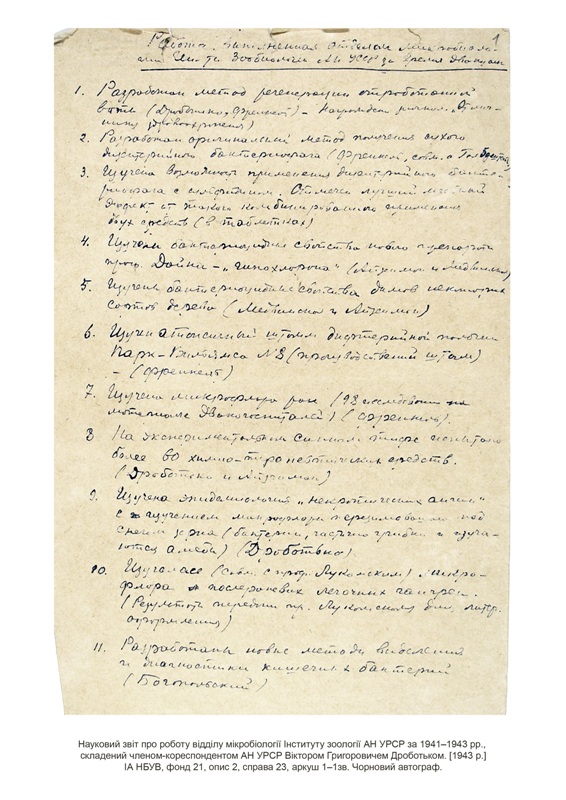 1
Работа, выполненная отделом микробиоло-
гии Ин-та Зообиологии АН УССР за время эвакуации
1. Разработан метод регенерации отработанной
ваты (Дроботько, Френкель) – Награжден значком „Отлич-
нику здравоохранения"
2. Разработан оригинальный метод получения сухого
дизентерийного бактериофага (Френкель, совм. с
3. Изучена возможность применения дизентерийного бакте-
риофага с сульфидином. Отмечен лучший лечебный
эффект от такого комбинированного применения
двух средств (в таблетках)
4. Изучены бактерицидные свойства нового препарата
проф. – „гипохлорона" (Айзенман и
5. Изучены бактерицидные свойства дымов некоторых
сортов дерева ( и Айзенман)
6. Изучен атоксичный штамм дифтерийной палочки
Парк-Вильямса N8 (производственный штам)
– (Френкель)
7. Изучена микрофлора ран (98 исследований на
материале Эвакогоспиталей) (Френкель).
8 На экспериментальном сыпном тифе испытано
более 60 химио-терапевтических средств.
(Дроботько и Айзенман)
9. Изучена эпидемиология „некротических ангин"
с изучением микрофлоры перезимовавшего под
снегом зерна (бактерии, частично грибки и изуча-
ются амебы) (Дроботько).
10. Изучалась (совм. с проф. Лукомским) микро-
флора послераневых легочных гангрен.
(Результаты переданы пр. Лукомскому для литер.
оформления)
11. Разработаны новые методы выделения
и диагностики кишечных бактерий
(Богопольский)
Науковий звіт про роботу відділу мікробіології Інституту зоології АН УРСР за 1941–1943 рр.,
складений членом-кореспондентом АН УРСР Віктором Григоровичем Дроботьком. [1943 р.]
ІА НБУВ, фонд 21, опис 2, справа 23, аркуш 1–1зв. Чорновий автограф.